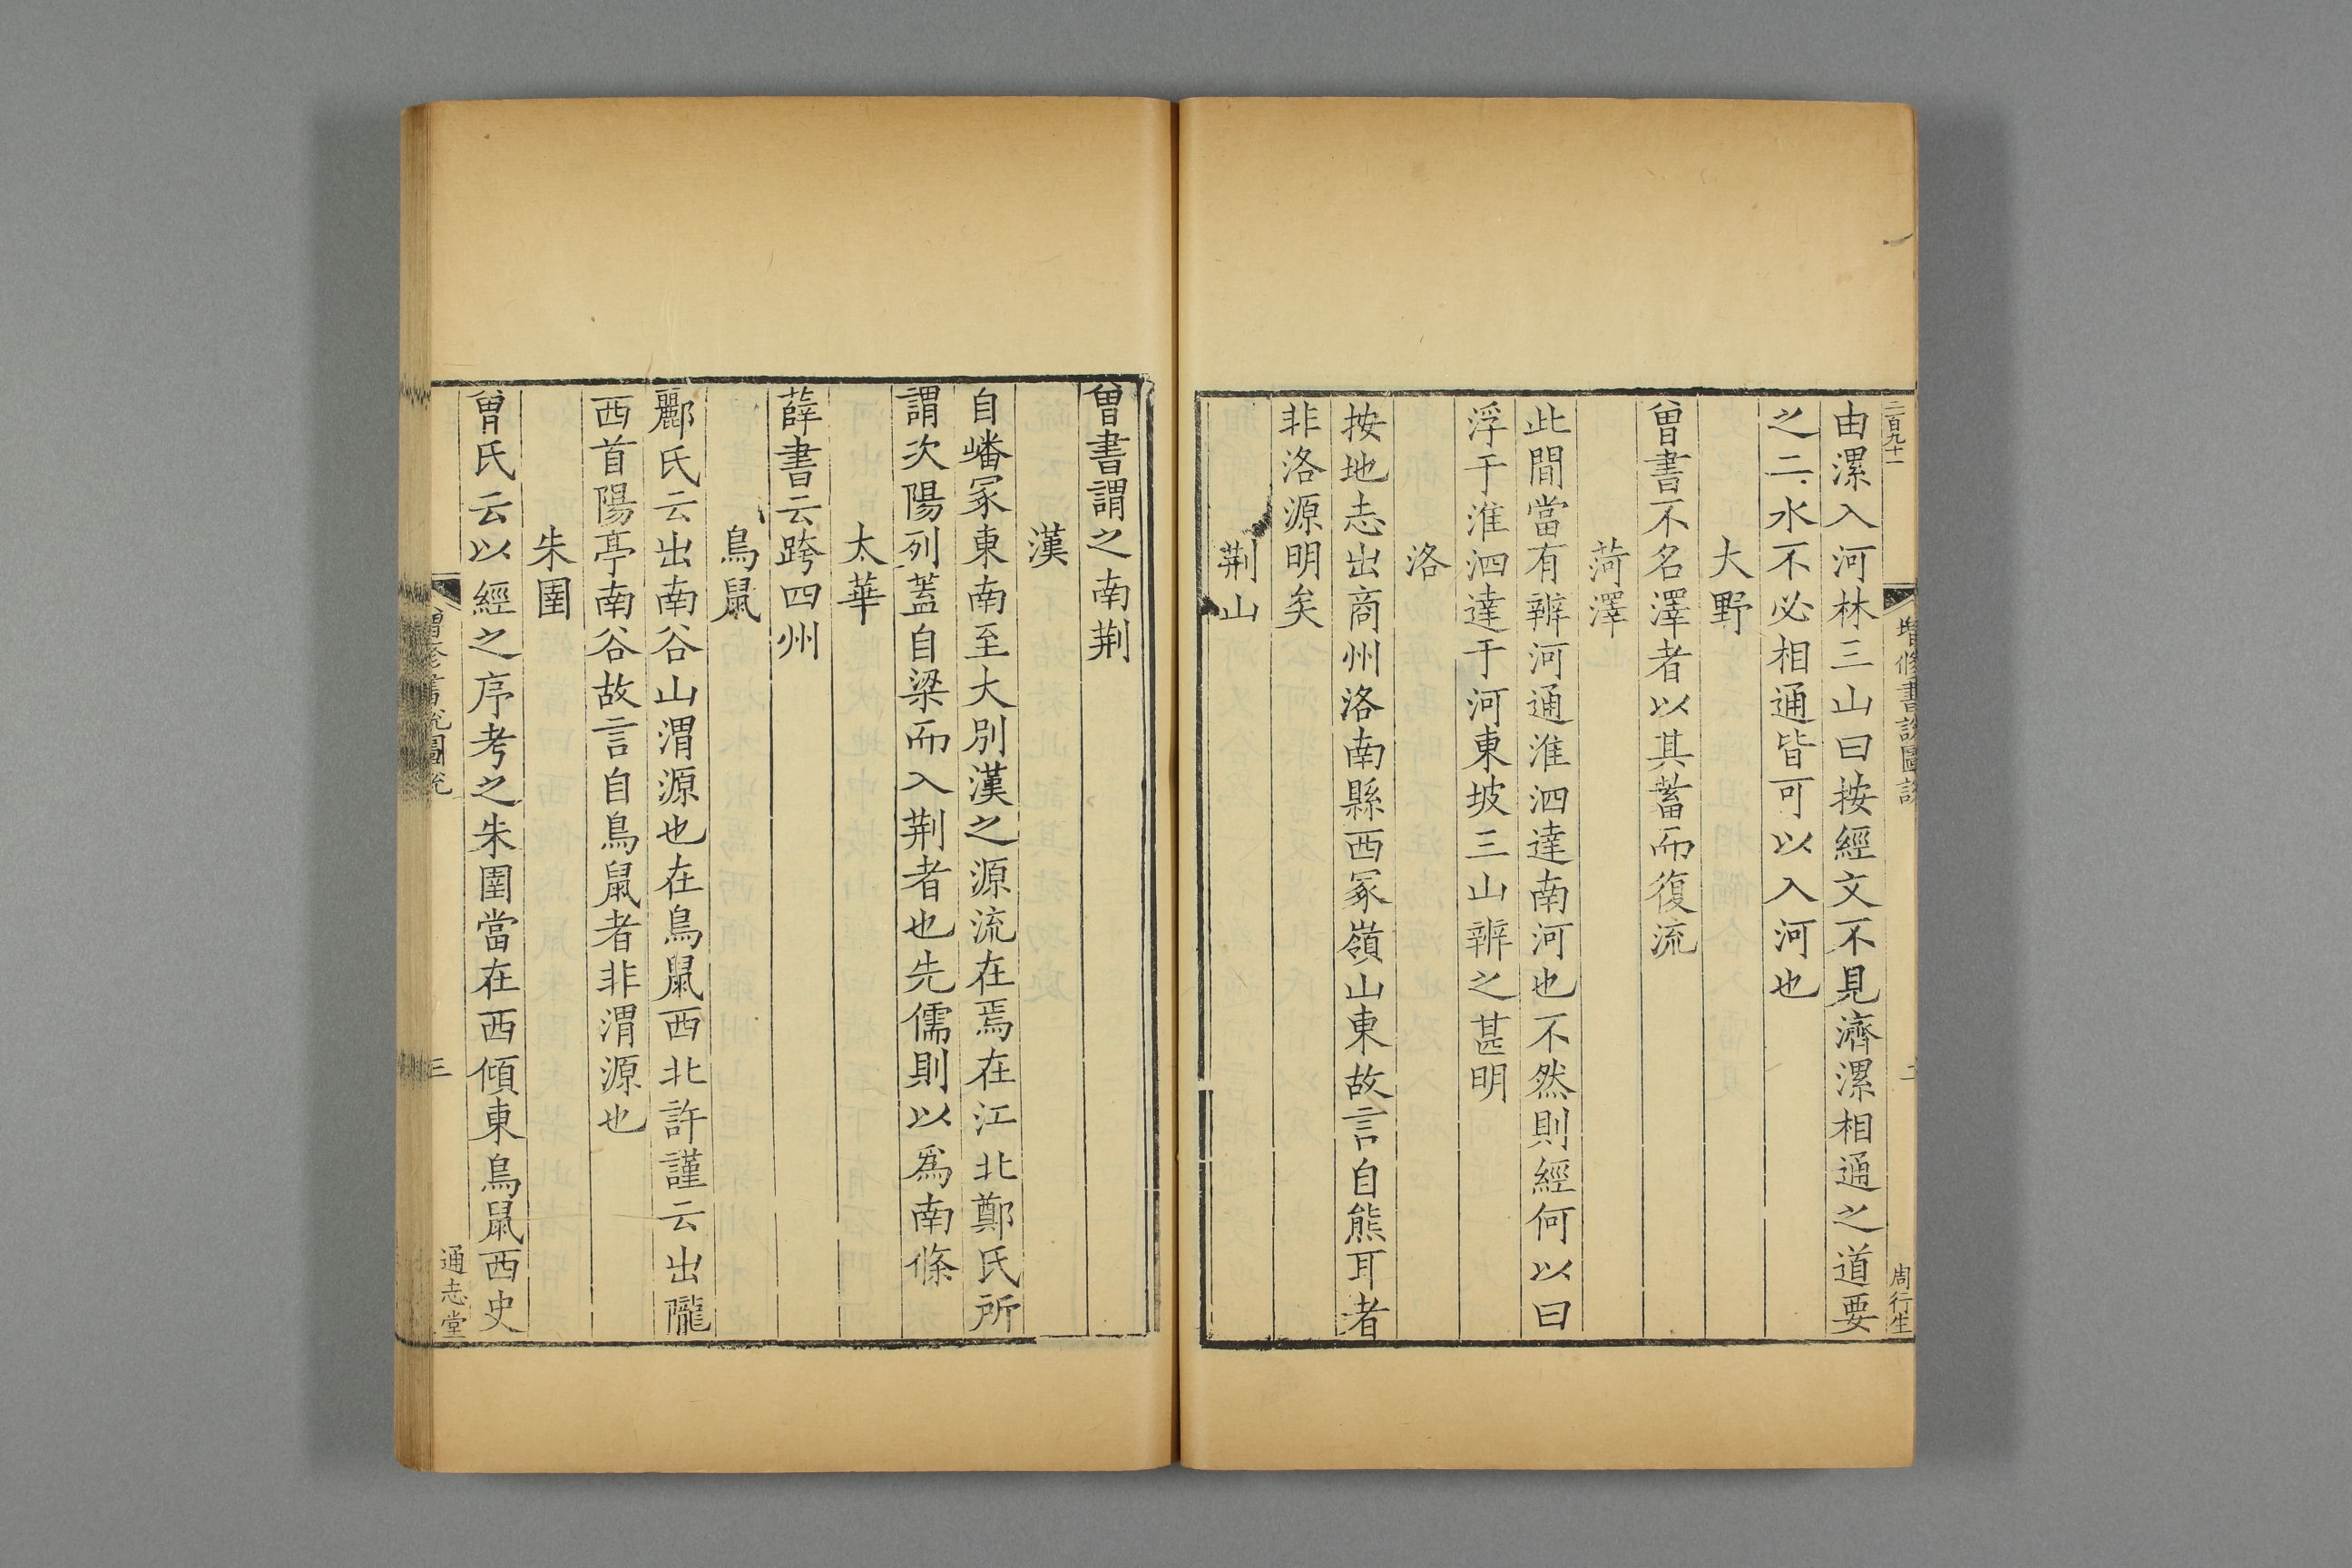 二百九十一
增修書說圖說
周行生
由漯入河林三山曰按經文不見濟漯相通之道要
之二水不必相通皆可以入河也
大野
曾書不名澤者以其蓄而復流
菏澤
此間當有辨河通淮泗達南河也不然則經何以曰
浮于淮泗達于河東坡三山辨之甚明
洛
按地志出商州洛南縣西冢嶺山東故言自熊耳者
非洛源明矣
荆山
曾書謂之南荆
漢
自嶓冢東南至大別漢之源流在焉在江北鄭氏所
謂次陽列蓋自梁而入荆者也先儒則以爲南條
太華
薛書云跨四州
鳥鼠
酈氏云出南谷山渭源也在鳥鼠西北許謹云出隴
西首陽亭南谷故言自鳥鼠者非渭源也
朱圉
曾氏云以經之序考之朱圉當在西傾東鳥鼠西史
增修書說圖說
三
通志堂